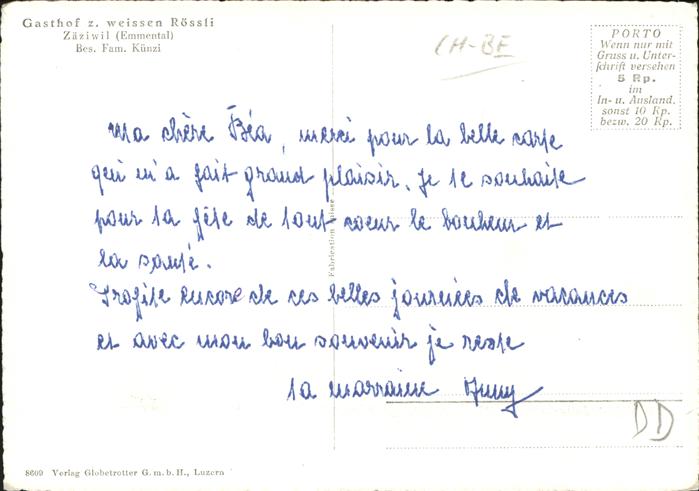 Gasthof z. weissen Rössli
Zäziwil (Emmental)
Bes. Fam. Künzi
CH-BE
PORTO
Wenn nur mit
Gruss u. Unter-
schrift versehen
5 Rp.
im
In- u. Ausland.
sonst 10 Rp.
bezw. 20 Rp.
Ma chère Béa, merci pour la belle carte
qui m'a fait grand plaisir. Je te souhaite
pour ta fête de tout coeur le bonheur et
la santé.
Profite encore de ces belles journées de vacances
et avec mon bon souvenir je reste
ta marraine
Fabrication Suisse
DD
8609 Verlag Globetrotter G. m. b. H., Luzern